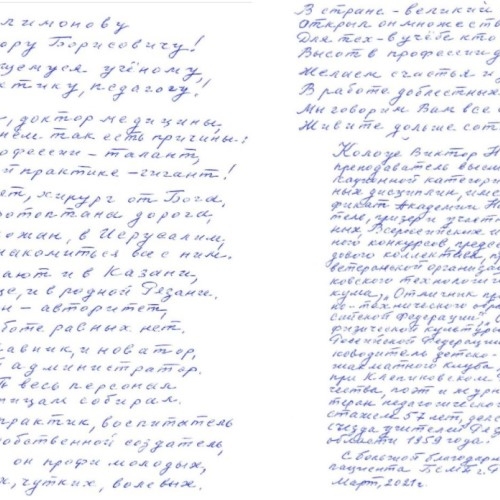 лимонову
ору Борисовичу!
щемуся учёному,
ктику, педагогу!
, доктор медицины,
нём так есть причины:
офессии – талант,
й практике – гигант!
ет, хирург от Бога,
ротоптана дорога,
ожан, в Иерусалим,
накомиться все с ним.
ают и в Казани,
це, и в родной Рязани.
н – авторитет,
боте равных нет.
авник, новатор,
й администратор.
весь персонал
ницам собирал.
практик, воспитатель
обственной создатель,
он профи молодых,
х, чутких, волевых.
В стране – великий
Открыл он множеств
Для тех – в учёбе кто
Высот в профессии д
Желаем счастья и з
В работе доблестных
Мы говорим Вам все
Живите дольше сот
Колода Виктор Н
преподаватель высш
кационной категори
ных дисциплин, име
фикат Академии На
теле, призер и участ
ных, Всероссийских и
ного конкурсов, предсе
зового коллектива, п
ветеранской организа
ковского технологич
кума, „Отличник пр
но-технического обра
сийской Федерации", С
физической культуры
Российской Федерации
ководитель детско-
шахматного клуба,
при Клепиковском
чества, поэт и журн
теран педагогическог
стажем 57 лет, деле
съезда учителей Ряз
области 1959 года.
С большой благодарн
пациента БСМП г. Р
Март, 2021г.